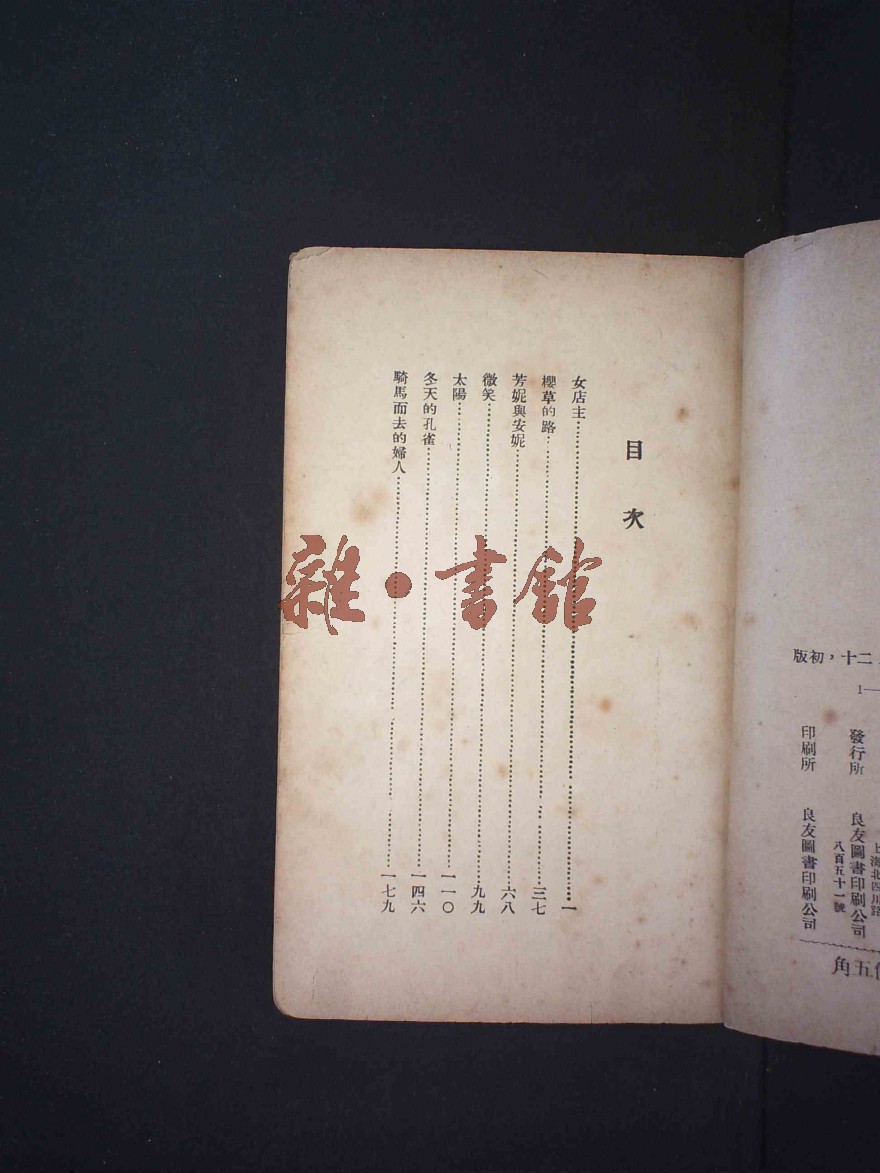 目次
女店主一
櫻草的路三七
芳妮與安妮六八
微笑九九
太陽一一〇
冬天的孔雀一四六
騎馬而去的婦人一七九
雜・書館
二十，初版
1—
發行所 良友圖書印刷公司
上海北四川路
八百五十一號
印刷所 良友圖書印刷公司
五角